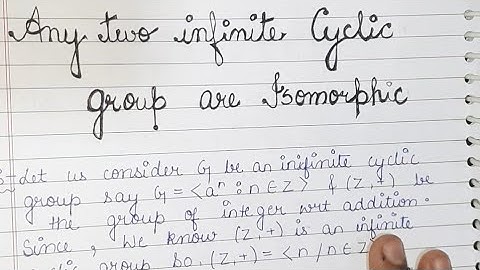 Any two infinite Cyclic
group are Isomorphic
Let us consider G be an inifinite cyclic
group say G = <aⁿ : n ∈ Z> & (Z, +) be
the group of integer wrt addition.
Since, We know (Z, +) is an infinite
group So, (Z, +) = <n / n ∈ Z